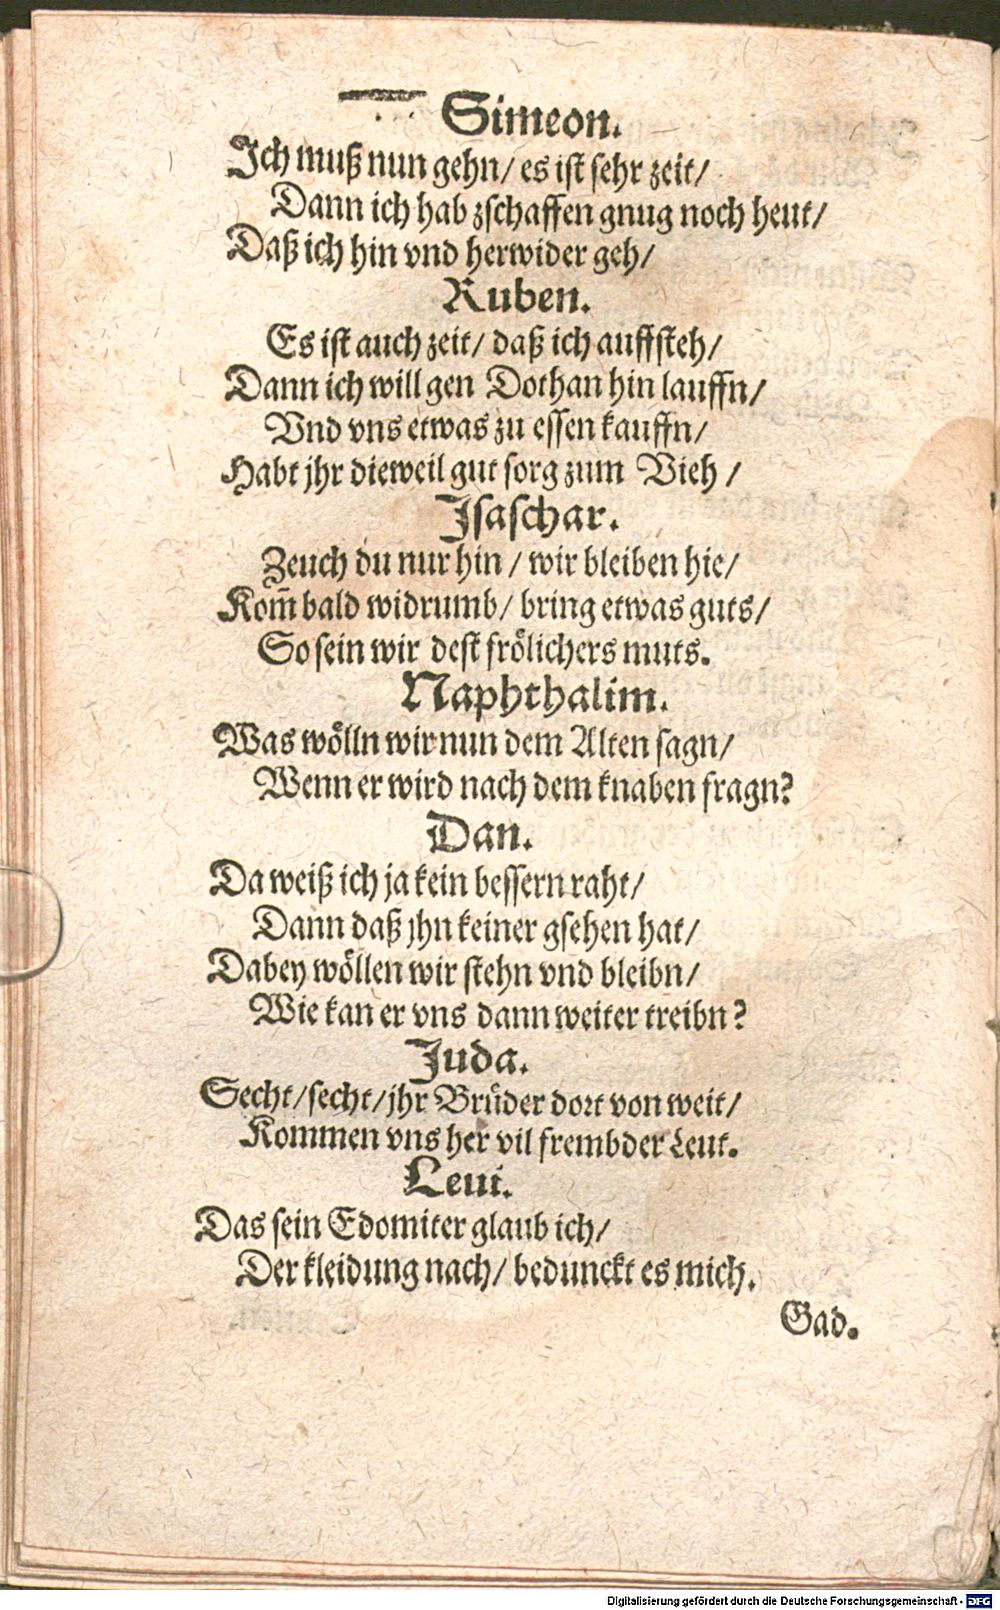 Simeon.
Ich muß nun gehn/ es ist sehr zeit/
Dann ich hab zschaffen gnug noch heut/
Daß ich hin vnd herwider geh/
Ruben.
Es ist auch zeit/ daß ich auffsteh/
Dann ich will gen Dothan hin lauffn/
Vnd vns etwas zu essen kauffn/
Habt jhr dieweil gut sorg zum Vieh/
Isaschar.
Zeuch du nur hin/ wir bleiben hie/
Kom̃ bald widrumb/ bring etwas guts/
So sein wir dest frölichers muts.
Naphthalim.
Was wölln wir nun dem Alten sagn/
Wenn er wird nach dem knaben fragn?
Dan.
Da weiß ich ja kein bessern raht/
Dann daß jhn keiner gsehen hat/
Dabey wöllen wir stehn vnd bleibn/
Wie kan er vns dann weiter treibn?
Juda.
Secht/ secht/ jhr Brüder dort von weit/
Kommen vns her vil frembder Leut.
Leui.
Das sein Edomiter glaub ich/
Der kleidung nach/ bedunckt es mich.
Gad.
Digitalisierung gefördert durch die Deutsche Forschungsgemeinschaft - DFG